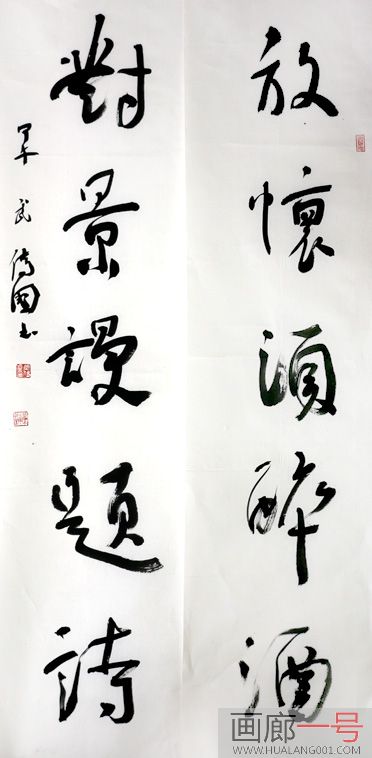 放懷須醉酒
對景謾題詩
武傳國書
画廊一号
WWW.HUALANG001.COM